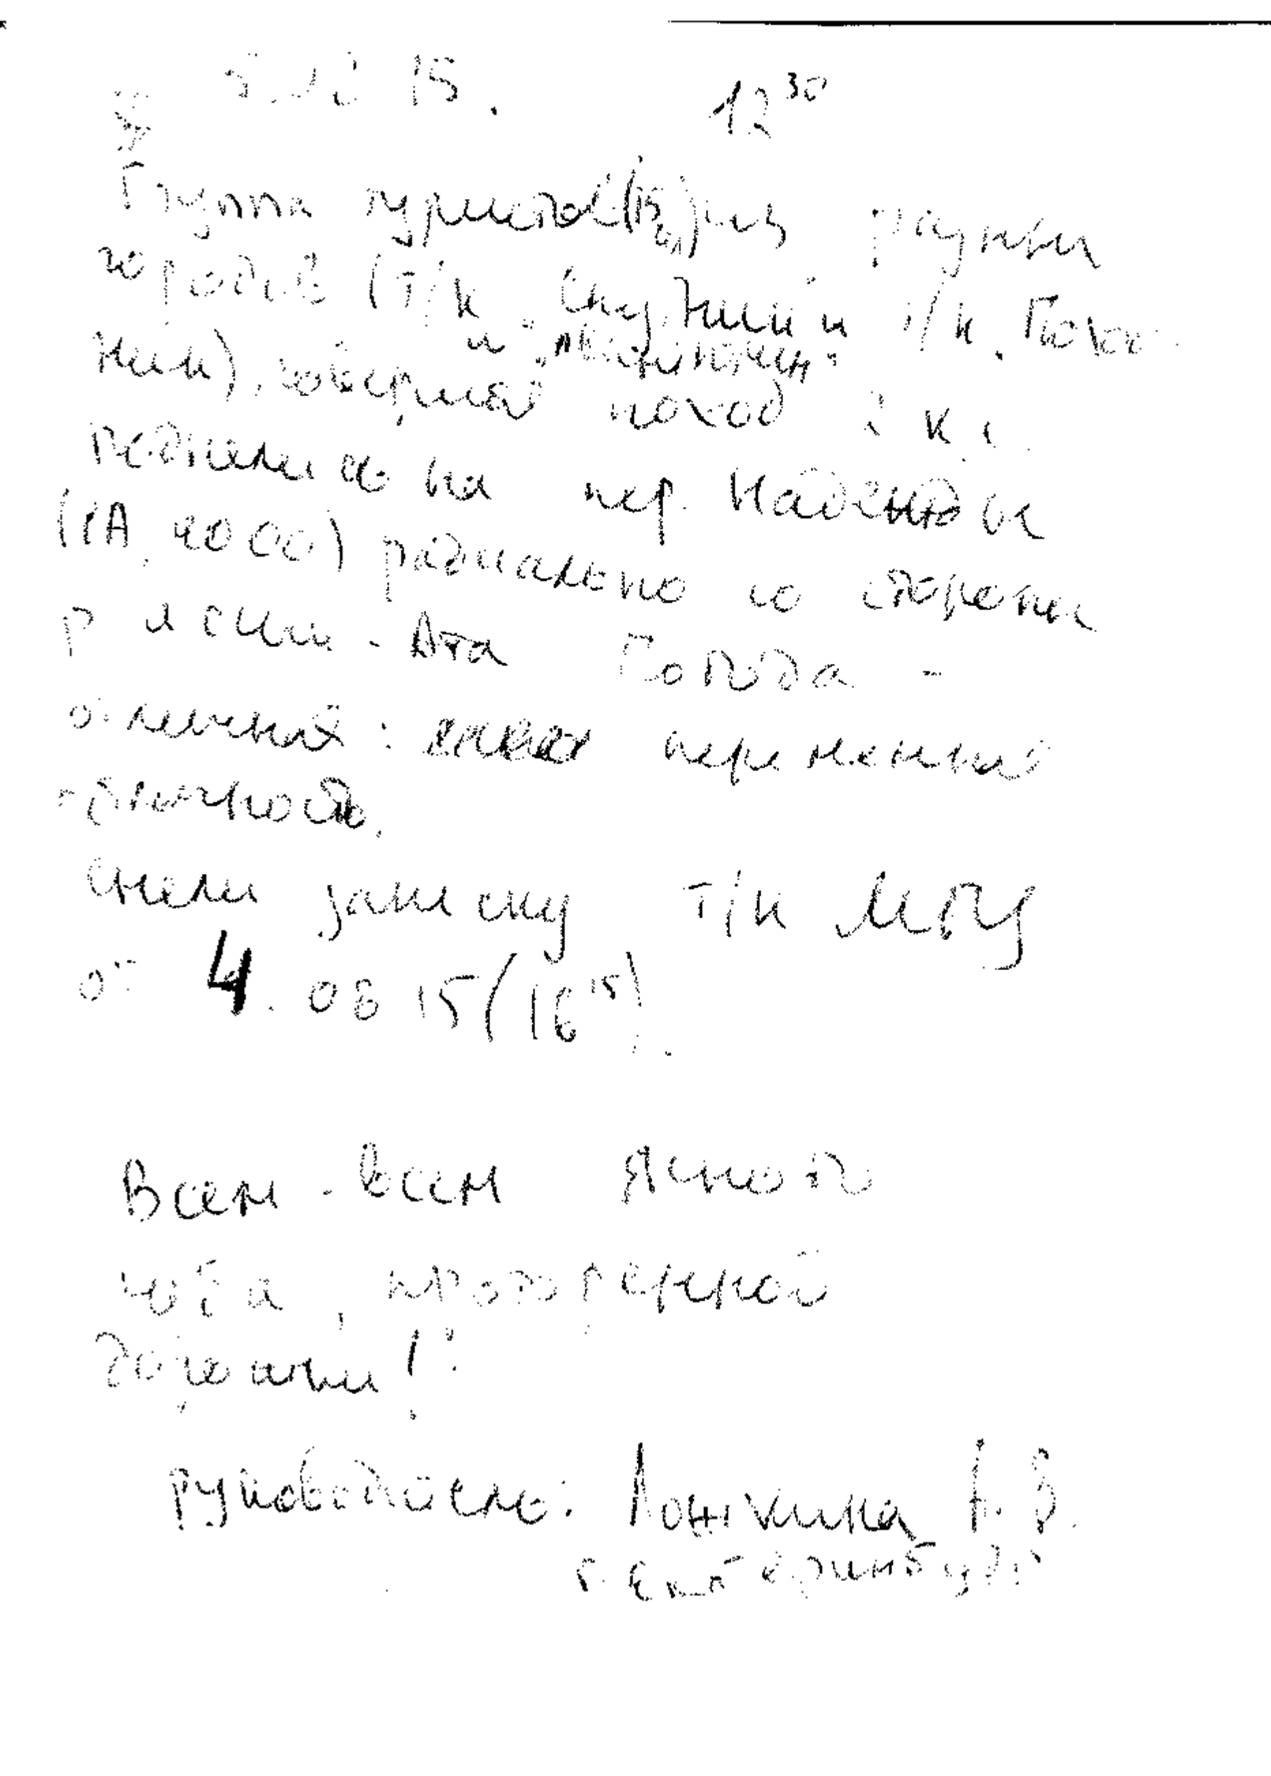 15. 12³⁰
Группа туристов (15 чел) из разных
городов (т/к Спутник и т/к Поход
ник), совершая поход 2 к.с.
поднялись на пер. Надежды
(1А, 4000) радиально со стороны
р Ашу - Ата Погода -
отличная: переменная
облачность.
Сняли записку т/к МГУ
от 4. 08 15 (16¹⁵).
Всем - всем ясного
неба, проторенной
дорожки!
руководитель: Ложкина А. В.
г. Екатеринбург